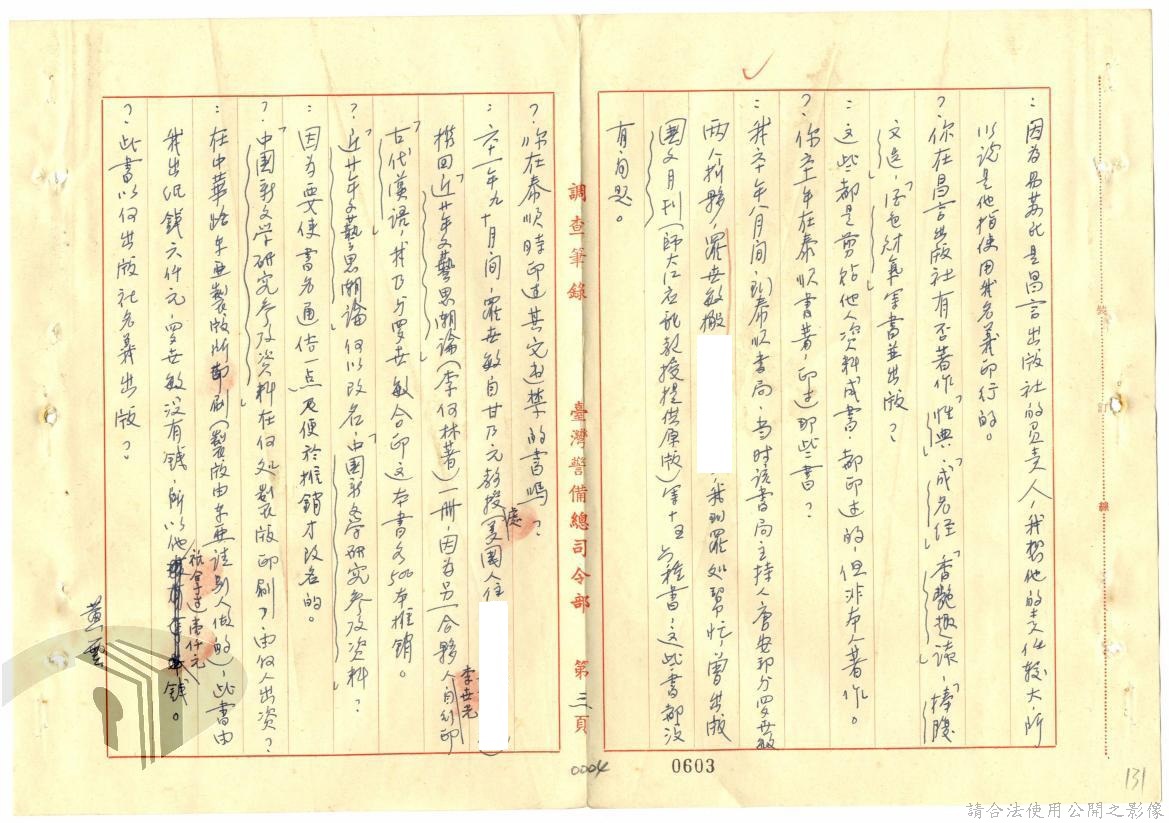 ：因為易蘇民是昌言出版社的負責人，我想他的責任較大，所
以說是他指使用我名義印行的。
？你在昌言出版社有否著作「性典」，「成名經」，「香艷趣談」，「捧腹
文選」，「酒色財氣」等書並出版？
：這些都是剪貼他人資料成書，都印過的，但非本人著作。
？你六十年在泰順書著，印过那些書？
：我六十年八月間，到泰順書局，當時該書局主持人唐安邦分羅世敏
兩人拆夥，羅世敏搬　，我到羅処幫忙，曾出版
國文月刊（師大江　教授提供原版）等十五六種書，这些書都沒
有问题。
調查筆錄　臺灣警備總司令部　第三頁
？你在泰順時印过其它違禁的書嗎？
：六十一年九、十月间，羅世敏自甘乃元教授（美國人住　處）
携回「近廿年文藝思潮論」（李何林著）一冊，因為另一合夥人李世光自行印
「古代漢語」，我乃分羅世敏合印这本書各500本推銷。
？「近廿年文藝思潮論」何以改名「中國新文学研究參攷資料」？
：因為要使書名通俗一点及便於推銷才改名的。
？「中國新文学研究參攷資料」在何処製版印刷？由何人出资？
：在中華路东亜製版所印刷（製版由东亜請別人做的），此書由
我出紙錢六仟元，羅世敏沒有錢，所以他祇拿过壹仟元錢。
？此書以何出版社名義出版？
黃雲
0004
0603
131
請合法使用公開之影像